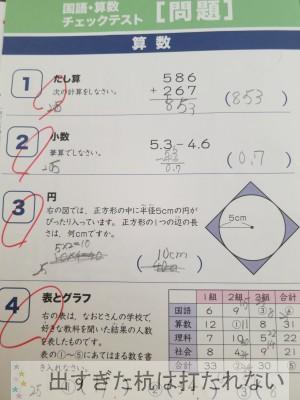 国語・算数
チェックテスト [問題]
算数
1 たし算
次の計算をしなさい。
586
+267
853
(853)
2 小数
筆算でしなさい。
5.3-4.6
0.7
(0.7)
3 円
右の図では、正方形の中に半径5cmの円が
ぴったり入っています。正方形の1つの辺の長
さは、何cmですか。
5cm
5×2=10
10cm
4 表とグラフ
右の表は、なおとさんの学校で、
好きな教科を聞いた結果の人数
を表したものです。
表の①~⑤にあてはまる数を書
き入れなさい。
1組 2組 3組 合計
国語 6 9 ③ ④
算数 12 ① 8 31
理科 7 10 5 22
社会 8 ② 9 21
合計 33 ⑤
出すぎた杭は打たれない